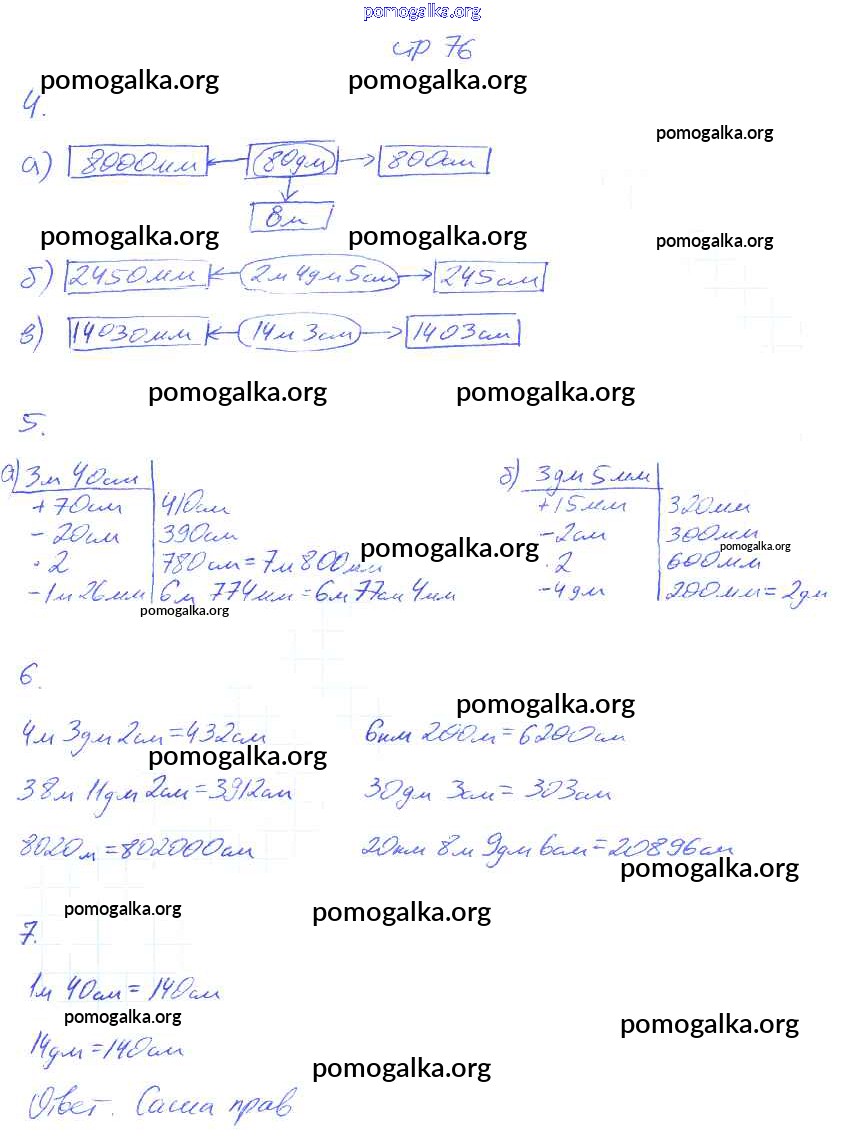 pomogalka.org
стр 76
pomogalka.org pomogalka.org
4.
pomogalka.org
а) 8000мм 80дм 800см
8м
pomogalka.org pomogalka.org pomogalka.org
б) 2450мм 2м 4дм 5см 245см
в) 14030мм 14м 3см 1403см
pomogalka.org pomogalka.org
5.
а) 3м 40см б) 3дм 5мм
+ 70см 410см +15мм 320мм
- 20см 390см -2см 300мм
pomogalka.org pomogalka.org
· 2 780см = 7м 800мм · 2 600мм
- 1м 26мм 6м 774мм = 6м 77см 4мм -4дм 200мм = 2дм
pomogalka.org
6.
pomogalka.org
4м 3дм 2см = 432см 6км 200м = 6200см
pomogalka.org
38м 11дм 2см = 3912см 30дм 3см = 303см
8020м = 802000см 20км 8м 9дм 6см = 20896см
pomogalka.org
pomogalka.org pomogalka.org
7.
1м 40см = 140см
pomogalka.org pomogalka.org
14дм = 140см
pomogalka.org
Ответ. Саша прав